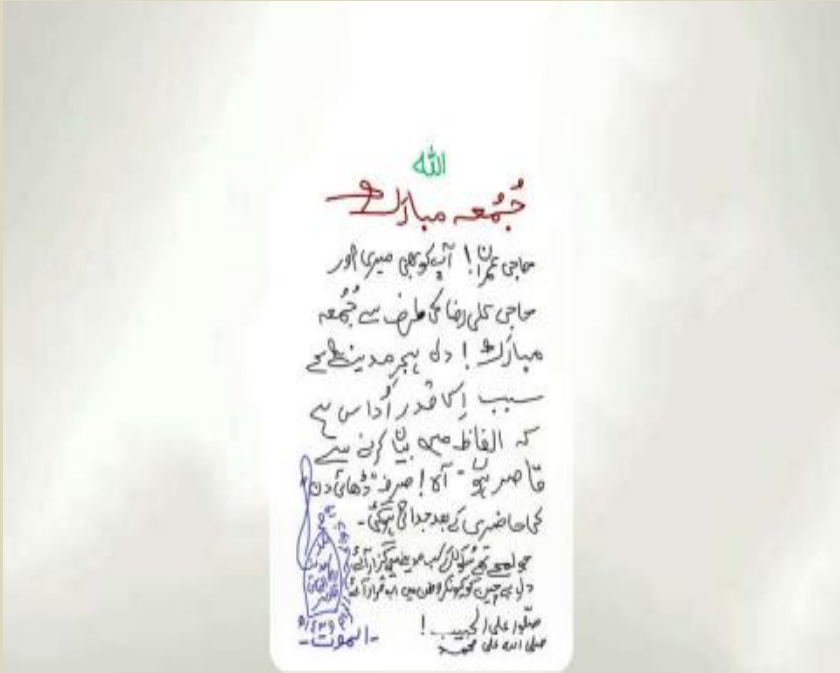 الله
جُمُعہ مبارک
حاجی عمران! آپ کو بھی میری اور
حاجی علی رضا کی طرف سے جُمُعہ
مبارک! دل ہجرِ مدینہ کے
سبب اِس قدر اُداس ہے
کہ الفاظ میں بیان کرنے سے
قاصر ہوں۔ آہ! صرف "ڈھائی دن"
کی حاضری کے بعد جدائی ہو گئی۔
جو لمحے تھے سُکوں کے سب مدینے میں گزار آئے
دلِ بے چین کو کیونکر وطن میں اب قرار آئے
صلّوا علی الحبیب!
صلی اللہ علی محمد
۔الموت۔